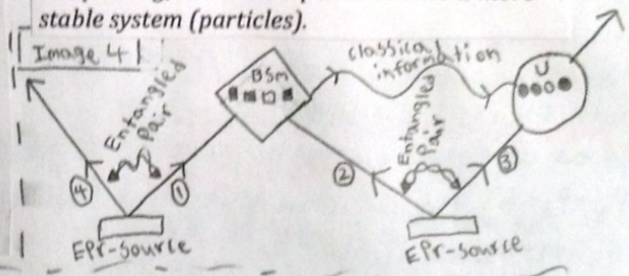 stable system (particles).
Image 4
Entangled
Pair
BSm
classical
information
Entangled
Pair
U
4
1
2
3
EPr-Source
EPr-Source